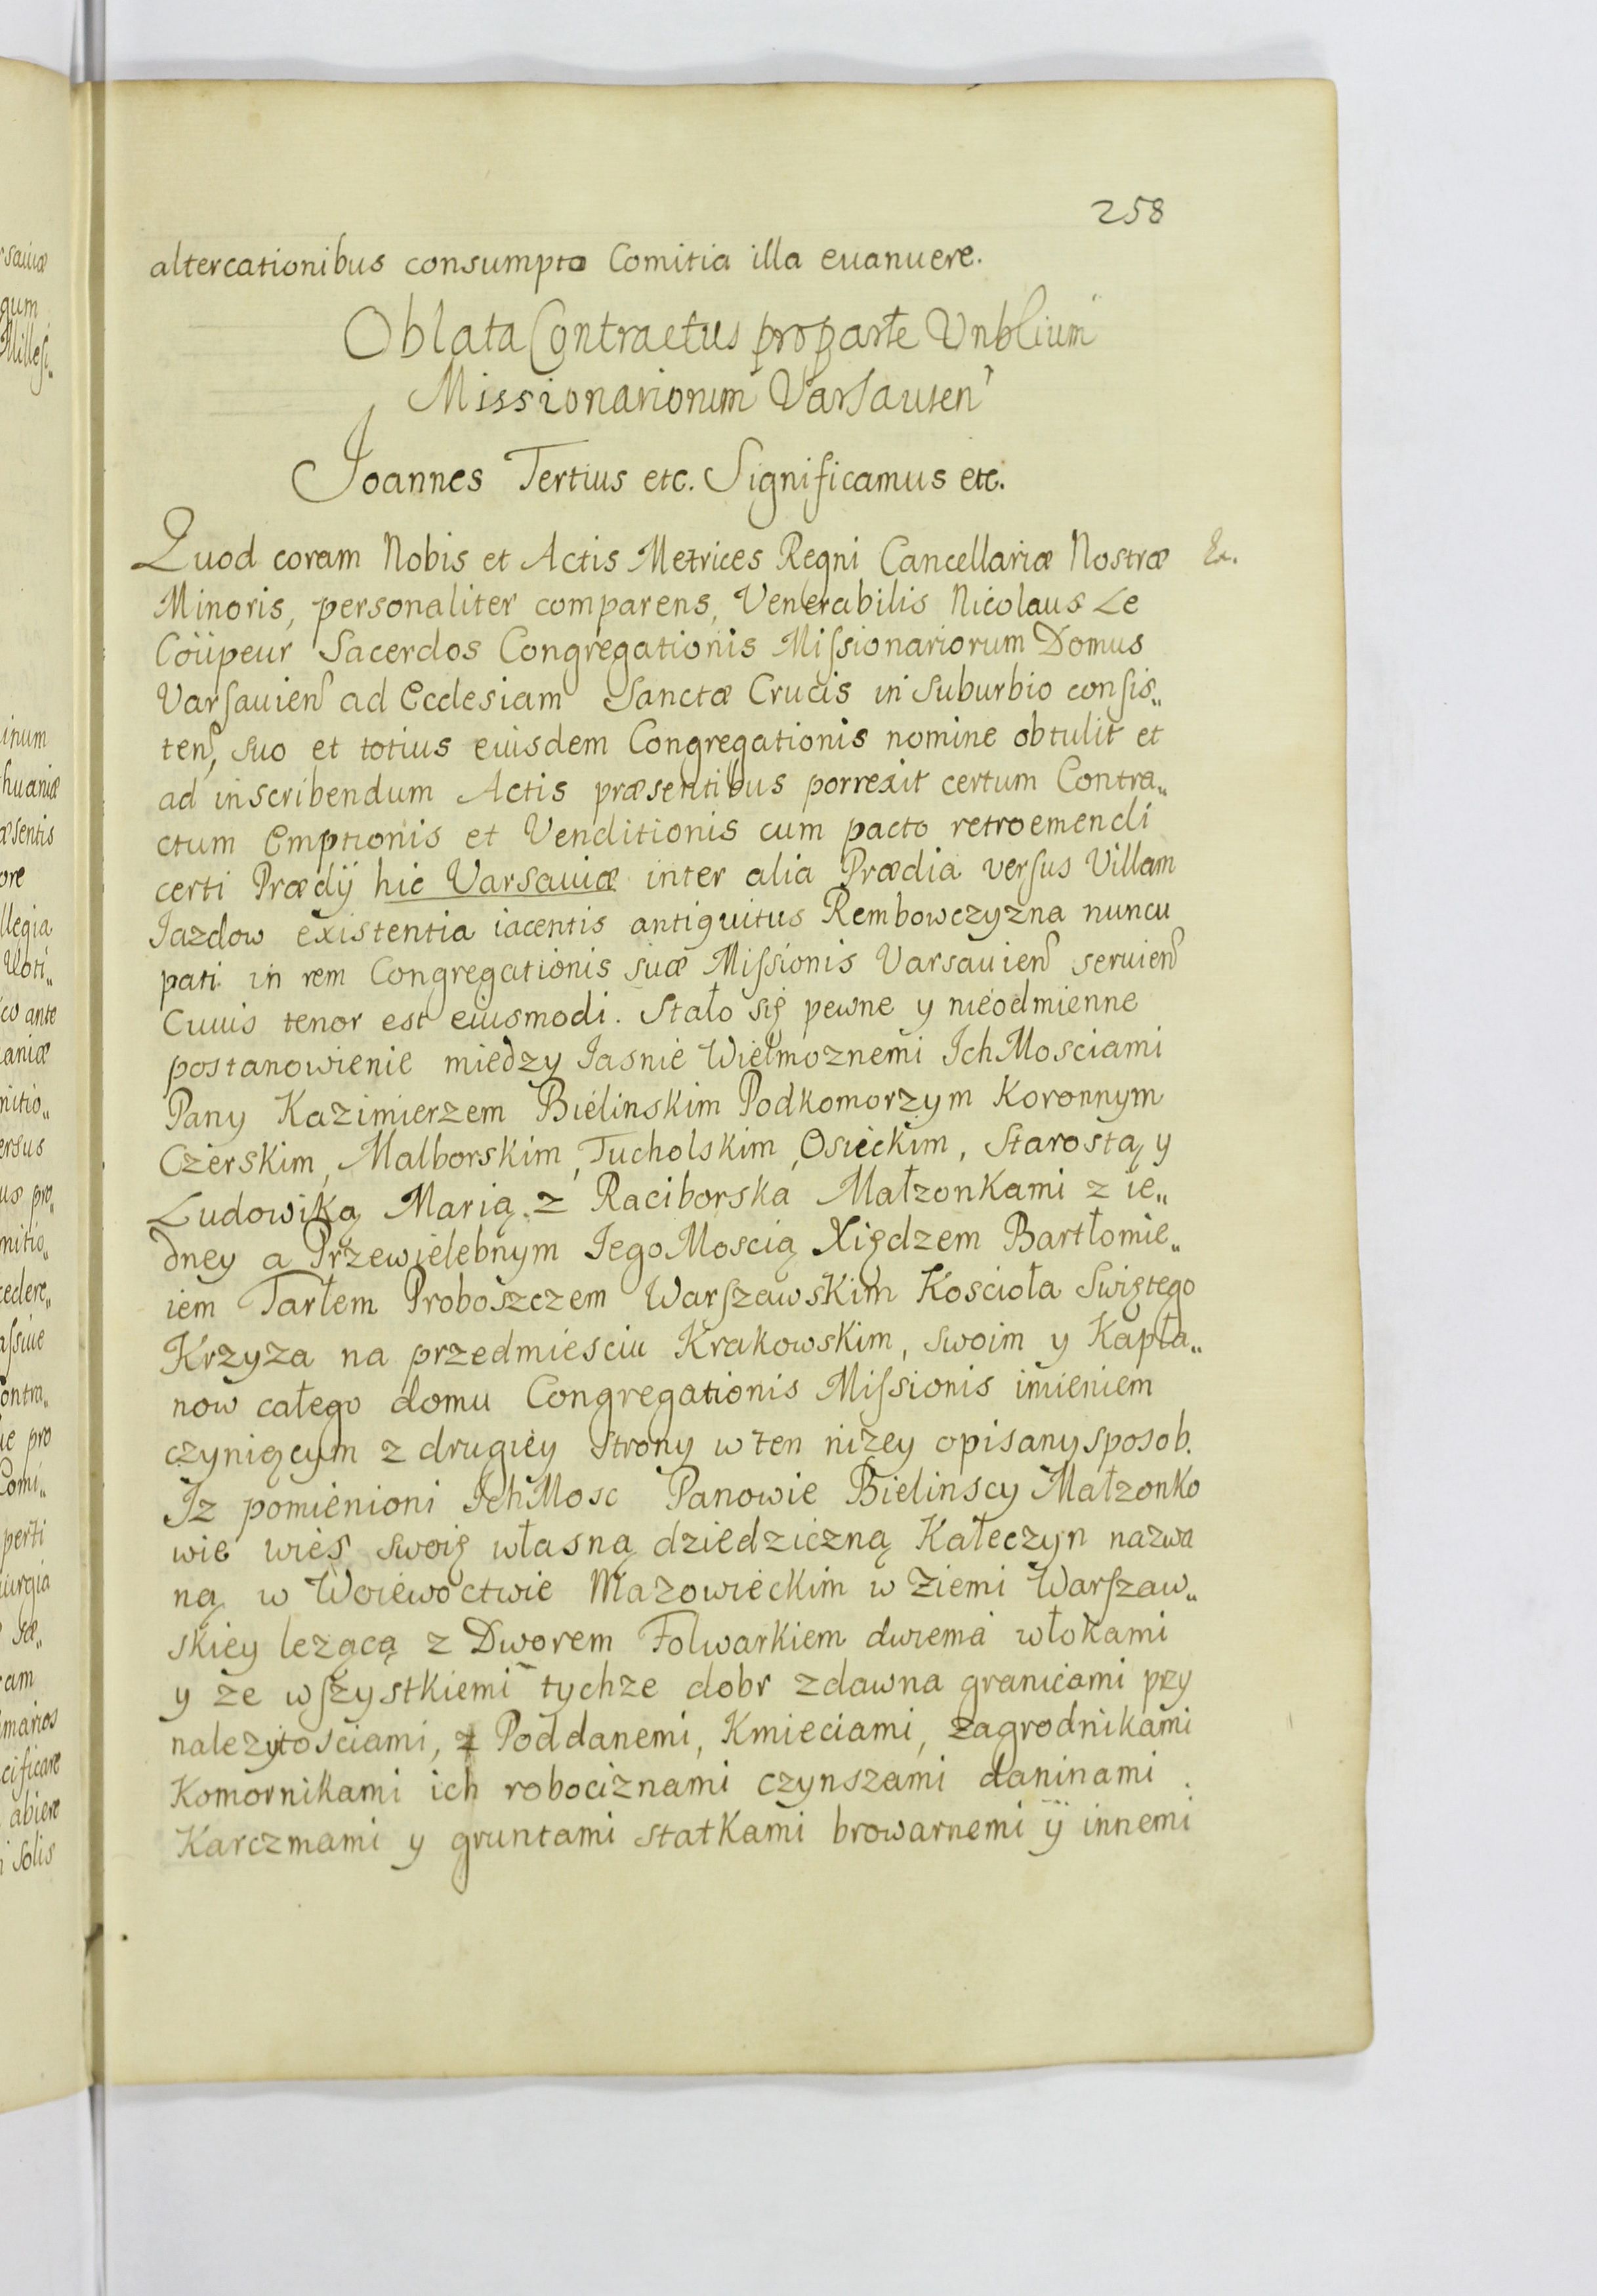 258
altercationibus consumpta Comitia illa euanuere.
Oblata Contractus pro parte Vnblium
Missionariorum Varsauien
Joannes Tertius etc. Significamus etc.
Quod coram Nobis et Actis Metrices Regni Cancellariæ Nostræ
Minoris, personaliter comparens, Venerabilis Nicolaus Le
Coüpeur Sacerdos Congregationis Missionariorum Domus
Varsauien ad Ecclesiam Sanctæ Crucis in Suburbio consis„
ten, suo et totius eiusdem Congregationis nomine obtulit et
ad inscribendum Actis præsentibus porrexit certum Contra„
ctum Emptionis et Venditionis cum pacto retroemendi
certi Prædij hic Varsauiæ inter alia Prædia versus Villam
Jazdow existentia iacentis antiquitus Rembowczyzna nuncu
pati in rem Congregationis suæ Missionis Varsauien seruien
Cuius tenor est eiusmodi. Stało się pewne y nieodmienne
postanowienie miedzy Jasnie Wielmoznemi Ich Mosciami
Pany Kazimierzem Bielinskim Podkomorzym Koronnym
Czerskim, Malborskim, Tucholskim, Osieckim, Starostą y
Ludowiką Marią z Raciborska Małzonkami z ie„
dney a Przewielebnym Jego Moscią Xiędzem Bartłomie„
iem Tarłem Proboszczem Warszawskim Koscioła Swiętego
Krzyza na przedmiesciu Krakowskim, swoim y Kapła„
now całego domu Congregationis Missionis imieniem
czyniącym z drugiey strony w ten nizey opisany sposob.
Iz pomienioni Ich Mosc Panowie Bielinscy Małzonko
wie wies swoię własną dziedziczną Kałeczyn nazwa
ną w Woiewoctwie Mazowieckim w Ziemi Warszaw„
skiey lezącą z Dworem Folwarkiem dwiema włokami
y ze wszystkiemi tychze dobr zdawna granicami przy
nalezytosciami, z Poddanemi, Kmieciami, zagrodnikami
Komornikami ich robociznami czynszami daninami
Karczmami y gruntami statkami browarnemi ÿ innemi